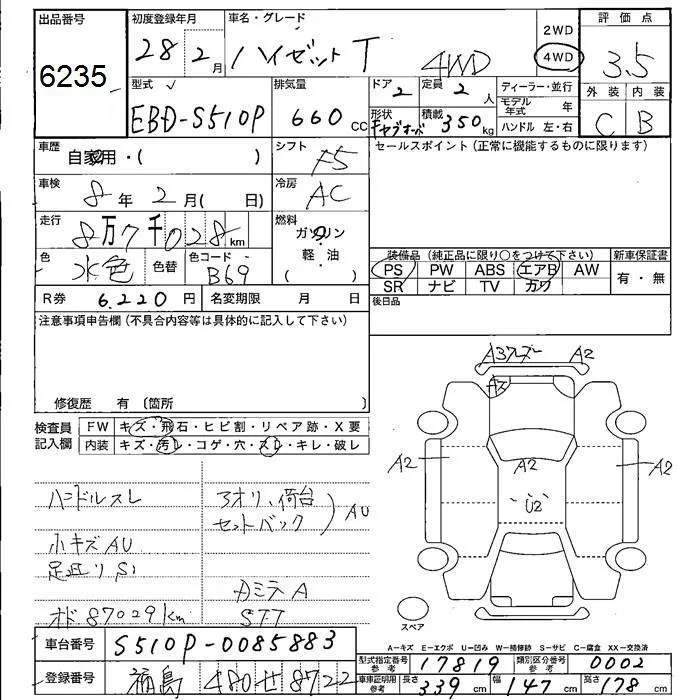 出品番号
6235
初度登録年月
28 2月
車名・グレード
ハイゼットT 4WD
2WD
4WD
評価点
3.5
外装 内装
C B
型式
EBD-S510P
排気量
660 CC
ドア 2
定員 2 人
形状
積載 350 kg
ディーラー・並行
モデル年式 年
ハンドル 左・右
車歴
自家用・( )
シフト
F5
セールスポイント(正常に機能するものに限ります)
車検
8年 2月( 日)
冷房
AC
走行
8万7千028 km
燃料
ガソリン
軽・油
( )
色
水色
色替
色コード
B69
装備品(純正品に限り○をつけて下さい)
新車保証書
PS PW ABS エアB AW
SR ナビ TV カワ
有・無
R券 6.220円
名変期限 月 日
後日品
注意事項申告欄(不具合内容等は具体的に記入して下さい)
修復歴 有〔箇所 〕
検査員記入欄
FW キズ・飛石・ヒビ割・リペア跡・X要
内装 キズ・汚レ・コゲ・穴・スレ・キレ・破レ
ハンドルスレ
小キズAU
足廻りS1
オド87029km
アオリ、荷台
セットバック
AU
カミテA
STT
A3
A2
A2
A2
U2
A2
スペア
A-キズ E-エクボ U-凹み W-補修跡 S-サビ C-腐食 XX-交換済
車台番号 S510P-0085883
登録番号 福島 480 せ 8722
型式指定番号参考 17819
類別区分番号参考 0002
車庫証明用参考 長さ 339 cm 幅 147 cm 高さ 178 cm